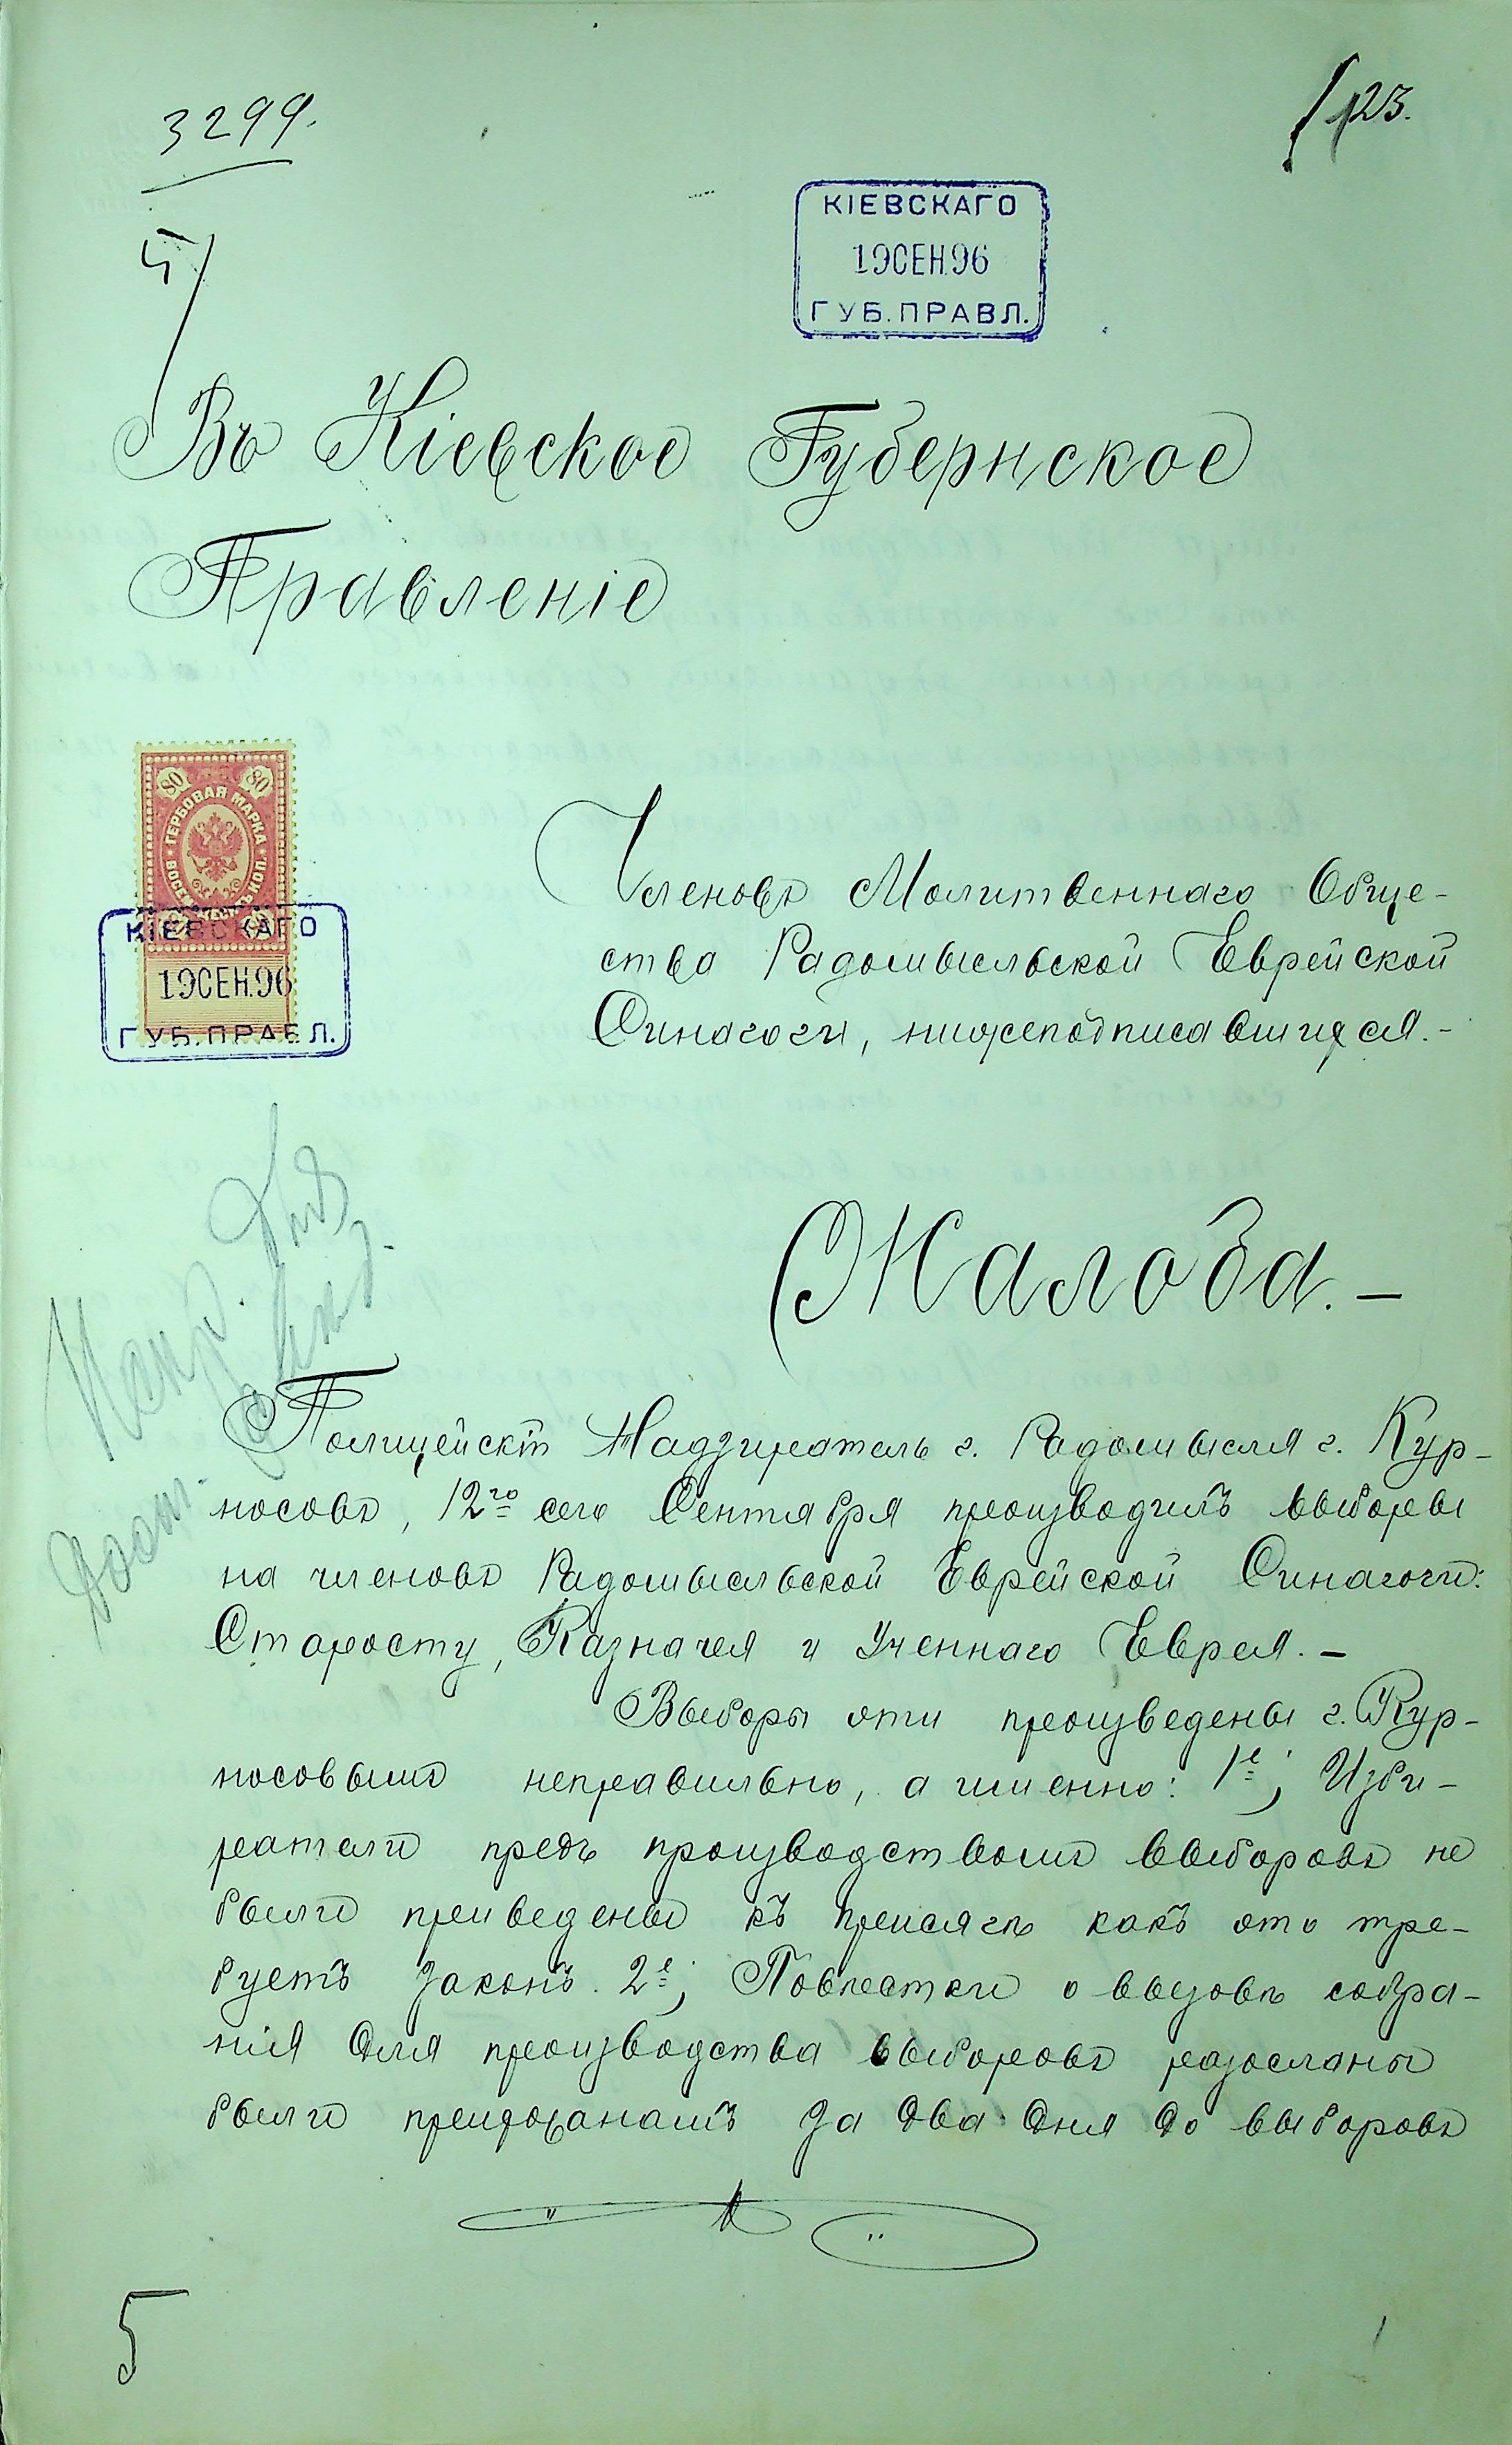 3299.
123.
КІЕВСКАГО
19 СЕН. 96
ГУБ. ПРАВЛ.
Въ Кіевское Губернское
Правленіе
80 80
ГЕРБОВАЯ МАРКА
КІЕВСКАГО
19 СЕН. 96
ГУБ. ПРАВЛ.
Членовъ Молитвеннаго Обще-
ства Радомысльской Еврейской
Синагоги, нижеподписавшихся.-
Жалоба.-
Полицейскій Надзиратель г. Радомысля г. Кур-
носовъ, 12го сего Сентября производилъ выборы
на членовъ Радомысльской Еврейской Синагоги:
Старосту, Казначея и Ученнаго Еврея.-
Выборы эти произведены г. Кур-
носовымъ неправильно, а именно: 1е; Изби-
ратели предъ производствомъ выборовъ не
были приведены къ присягѣ какъ это тре-
буетъ законъ. 2е; Повѣстки о вызовѣ собра-
нія для производства выборовъ разосланы
были прихожанамъ за два дня до выборовъ
5